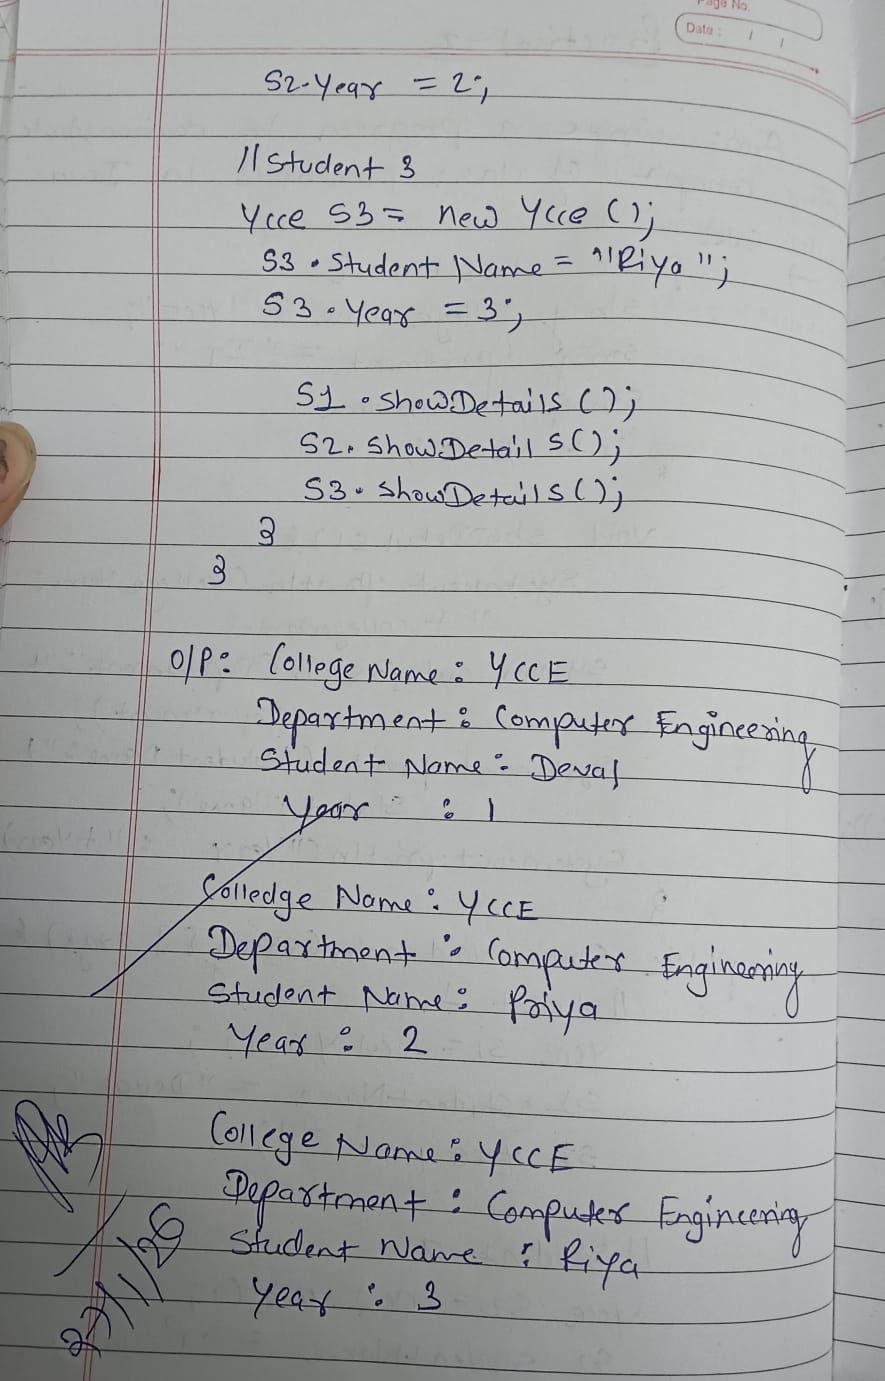 Page No.
Date : / /
S2.Year = 2;
// Student 3
Ycce S3 = new Ycce ();
S3 . Student Name = "Riya";
S3 . Year = 3;
S1 . ShowDetails ();
S2. ShowDetails ();
S3 . ShowDetails ();
}
}
O/P: College Name : YCCE
Department : Computer Engineering
Student Name : Deval
Year : 1
Colledge Name : YCCE
Department : Computer Engineering
Student Name : Priya
Year : 2
College Name : YCCE
Department : Computer Engineering
Student Name : Riya
Year : 3
27/1/26